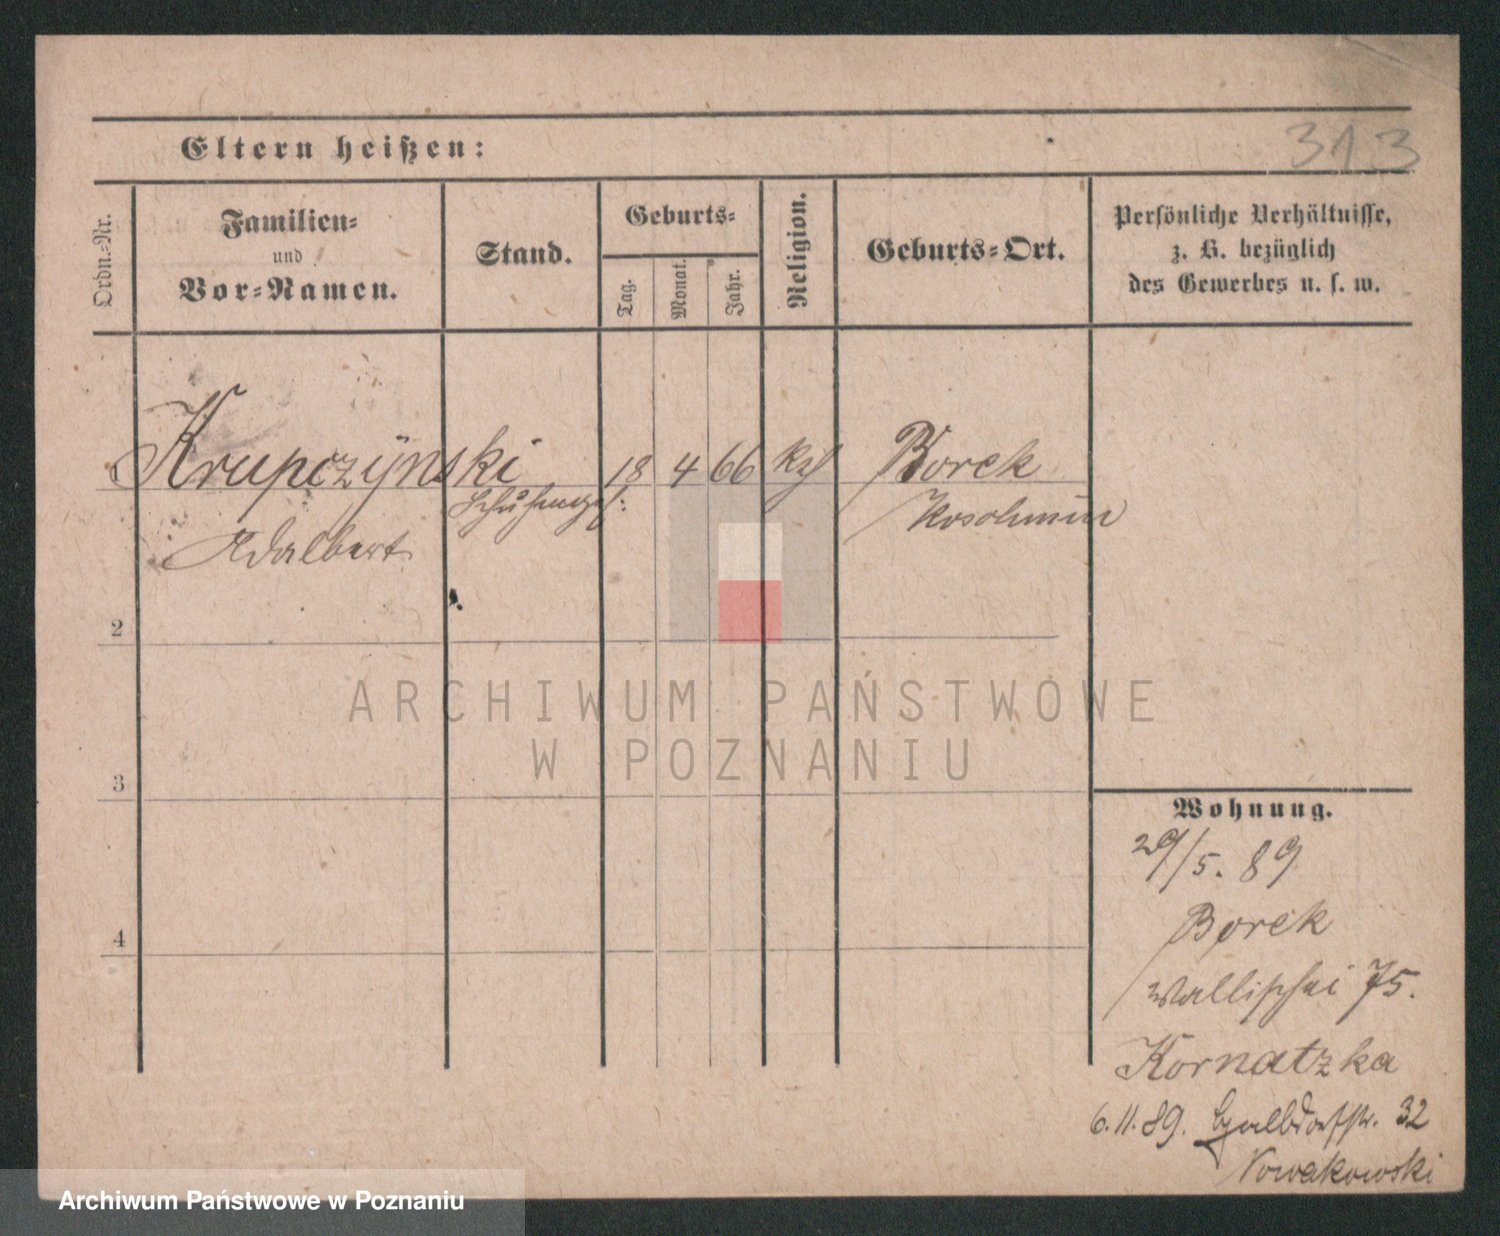 313
Eltern heißen:
Ordn.-Nr.
Familien-
und
Vor-Namen.
Stand.
Geburts-
Tag.
Monat.
Jahr.
Religion.
Geburts-Ort.
Persönliche Verhältnisse,
z. B. bezüglich
des Gewerbes u. s. w.
Krupczynski 18 4 66 Kath Borek
Adalbert Koschmin
2
3
4
Wohnung.
29/5. 89
Borek
Wallischei 75.
Kornatzka
6.11.89. 32
Nowakowski
ARCHIWUM PAŃSTWOWE
W POZNANIU
Archiwum Państwowe w Poznaniu